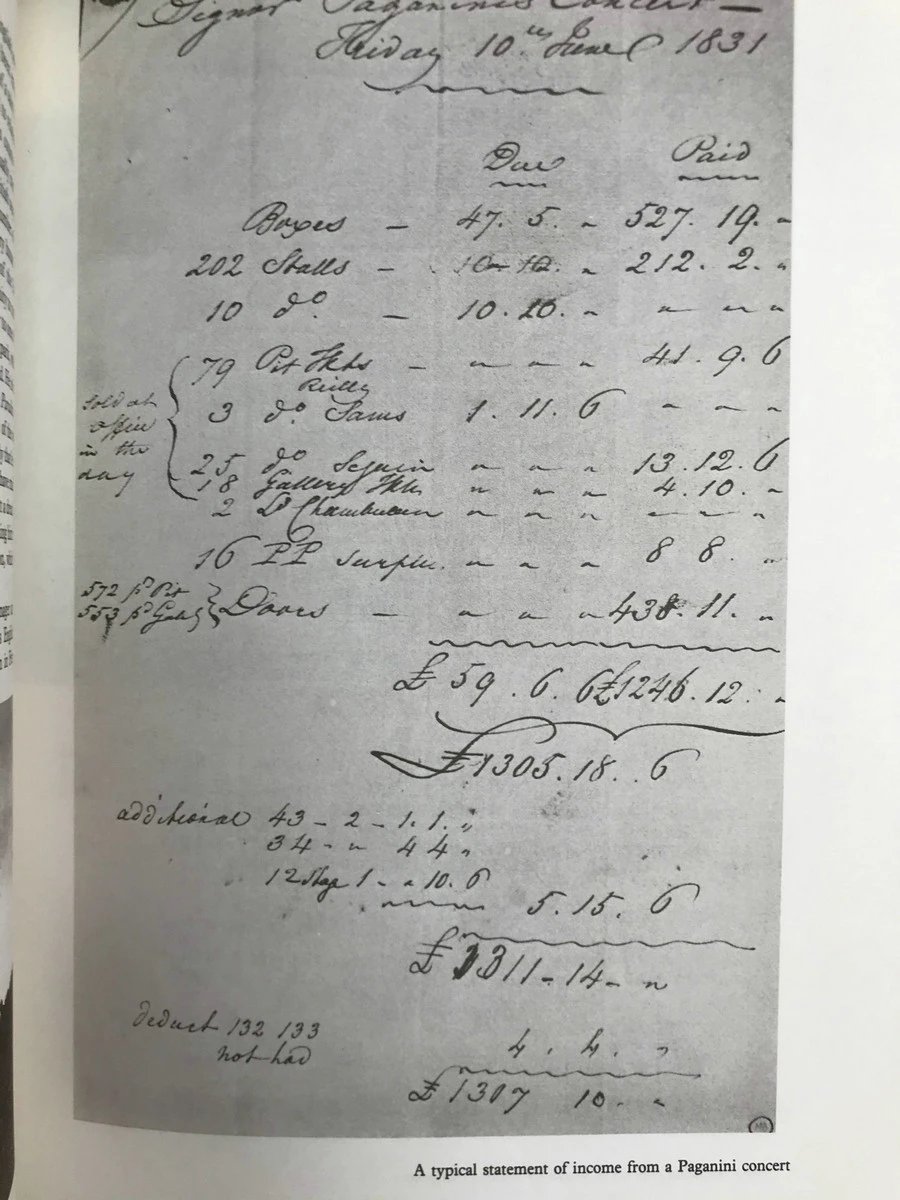 Signor Paganini's Concert —
Friday 10th June 1831
Due Paid
Boxes — 47. 5. " 527. 19. "
202 Stalls — 10 10. " 212. 2. "
10 do. — 10. 10. " " " "
79 Pit Tkts — " " " 41. 9. 6
3 do. Sams 1. 11. 6 " " "
sold at office in the day
25 do Seguin " " " 13. 12. 6
18 Gallery Tkts " " " 4. 10. "
2 Ld Chamberlain " " " " " "
16 PP surplu. " " " 8 8. "
572 pd Pit
553 pd Gall
Doors — " " " 438. 11. "
£ 59. 6. 6 £1246. 12. "
£1305. 18. 6
additional 43 - 2 - 1. 1. "
34 - " 4 4 "
12 1 - " 10. 6
5. 15. 6
£1311 - 14 - "
deduct 132 133 4. 4. "
not had
£1307 10. "
A typical statement of income from a Paganini concert